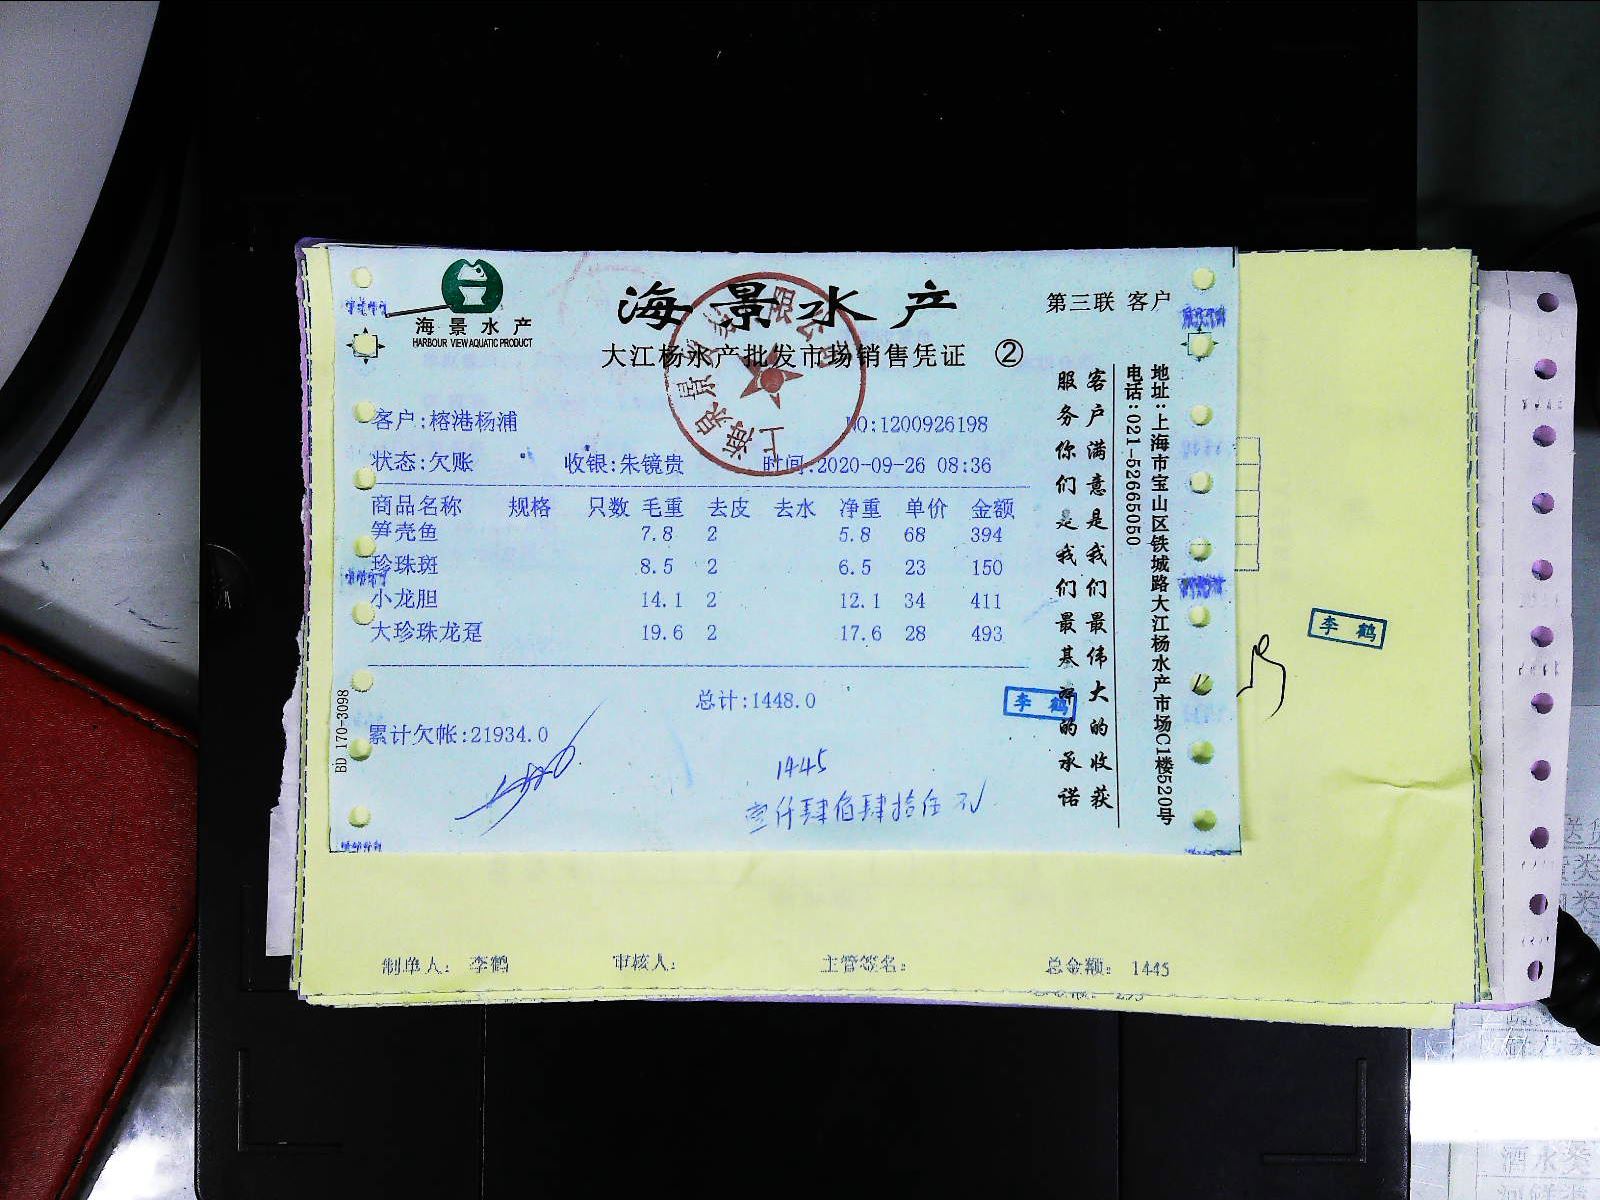 海景水产
HARBOUR VIEW AQUATIC PRODUCT
海景水产
第三联 客户
大江杨水产批发市场销售凭证 ②
客户:榕港杨浦
NO:1200926198
状态:欠账 收银:朱镜贵 时间:2020-09-26 08:36
商品名称 规格 只数 毛重 去皮 去水 净重 单价 金额
笋壳鱼 7.8 2 5.8 68 394
珍珠斑 8.5 2 6.5 23 150
小龙胆 14.1 2 12.1 34 411
大珍珠龙趸 19.6 2 17.6 28 493
总计:1448.0
累计欠帐:21934.0
李鹤
1445
壹仟肆佰肆拾伍
BD 170-3098
客户满意是我们最伟大的收获
服务你们是我们最基 的承诺
地址:上海市宝山区铁城路大江杨水产市场C1楼520号
电话:021-52665050
李鹤
制单人: 李鹤 审核人: 主管签名: 总金额: 1445
酒水类